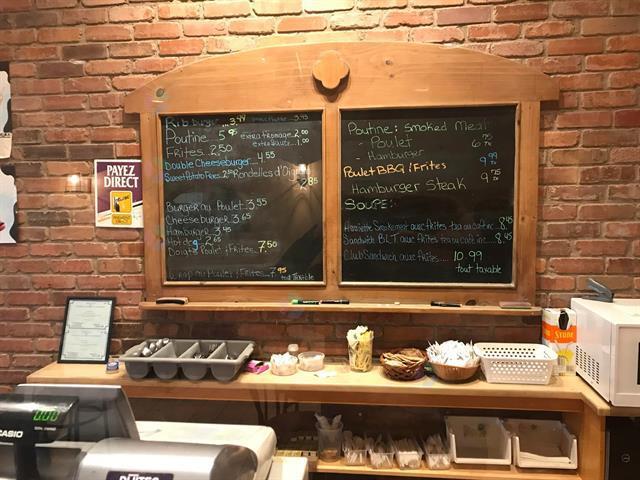 Rib burger ... 3.99
Poutine 5.95 extra fromage 2.00
extra sauce 1.00
Frites 2.50
Double Cheeseburger 4.55
Sweet Potato Fries 2.50 Rondelles d'Oignon 2.85
Burger au Poulet 3.55
Cheeseburger 3.65
Hamburger 3.45
Hot dog 2.65
Doigts Poulet & Frites... 7.50
Wrap au Poulet & Frites... 7.95
tout taxible
Poutine: Smoked Meat
- Poulet 6.75
- Hamburger
Poulet BBQ & Frites 9.99
Hamburger Steak 9.75
SOUPE:
avec frites tea ou café inc... 8.45
Sandwich BLT avec frites tea ou café inc... 8.45
Club Sandwich avec frites..... 10.99
tout taxable
PAYEZ
DIRECT
0.00
CASIO